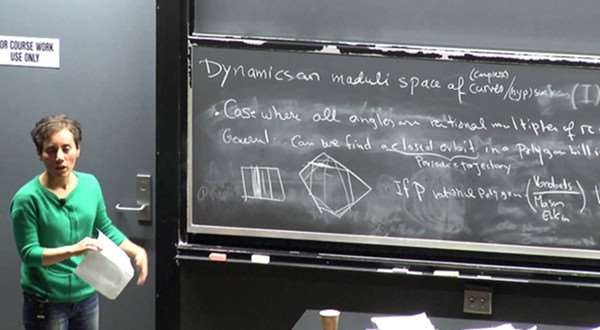 FOR COURSE WORK
USE ONLY
Dynamics on moduli space of (complex) curves/hyp (I)
• Case where all angles are rational multiples of
General .. Can we find a closed orbit in a polygon
Periodic trajectory
If P rational polygon (
Mason